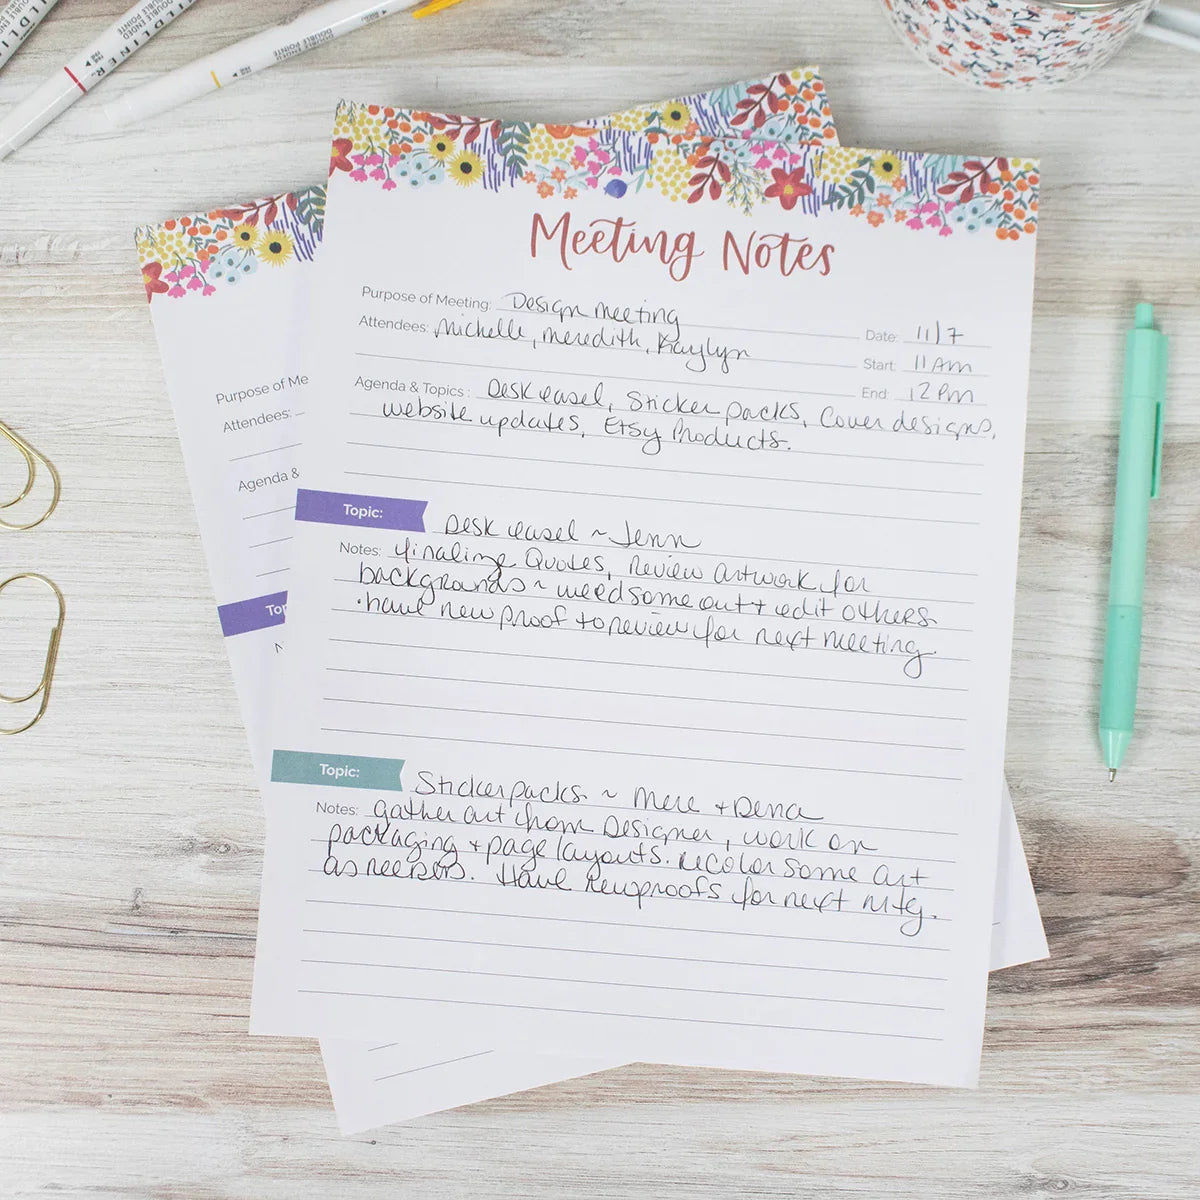 WILDLINER
DOUBLE ENDED
DOUBLE POINTE
WILDLINER
DOUBLE ENDED
DOUBLE POINTE
Meeting Notes
Purpose of Meeting: Design meeting
Date: 11/7
Attendees: Michelle, Meredith, Kaylyn
Start: 11 AM
End: 12 PM
Agenda & Topics: Desk easel, Sticker packs, Cover designs,
website updates, Etsy Products.
Topic: Desk easel ~ Jenn
Notes: finalize Quotes, review artwork for
backgrounds ~ weed some out + edit others.
· have new proof to review for next meeting.
Topic: Sticker packs ~ Mere + Dena
Notes: gather art from Designer, work on
packaging + page layouts. recolor some art
as needed. Have new proofs for next mtg.
Purpose of Me
Attendees:
Agenda &
Top
N